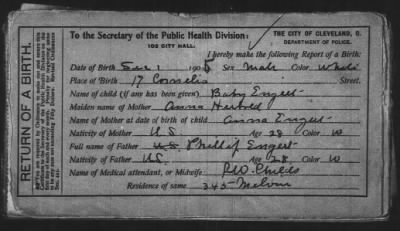 To the Secretary of the Public Health Division:
102 CITY HALL.
THE CITY OF CLEVELAND, O.
DEPARTMENT OF POLICE.
I hereby make the following Report of Birth:
Date of Birth Dec 1 1905 Sex Male Color White
Place of Birth 17 Cornelia Street.
Name of child (if any has been given) Baby Engert
Maiden name of Mother Anna
Name of Mother at date of birth of child Anna Engert
Nativity of Mother U.S. Age 28 Color W
Full name of Father U.S. Phillip Engert
Nativity of Father U.S. Age 28 Color W
Name of Medical attendant, or Midwife P.W. Childs
Residence of same 345 Melvin
RETURN OF A BIRTH.